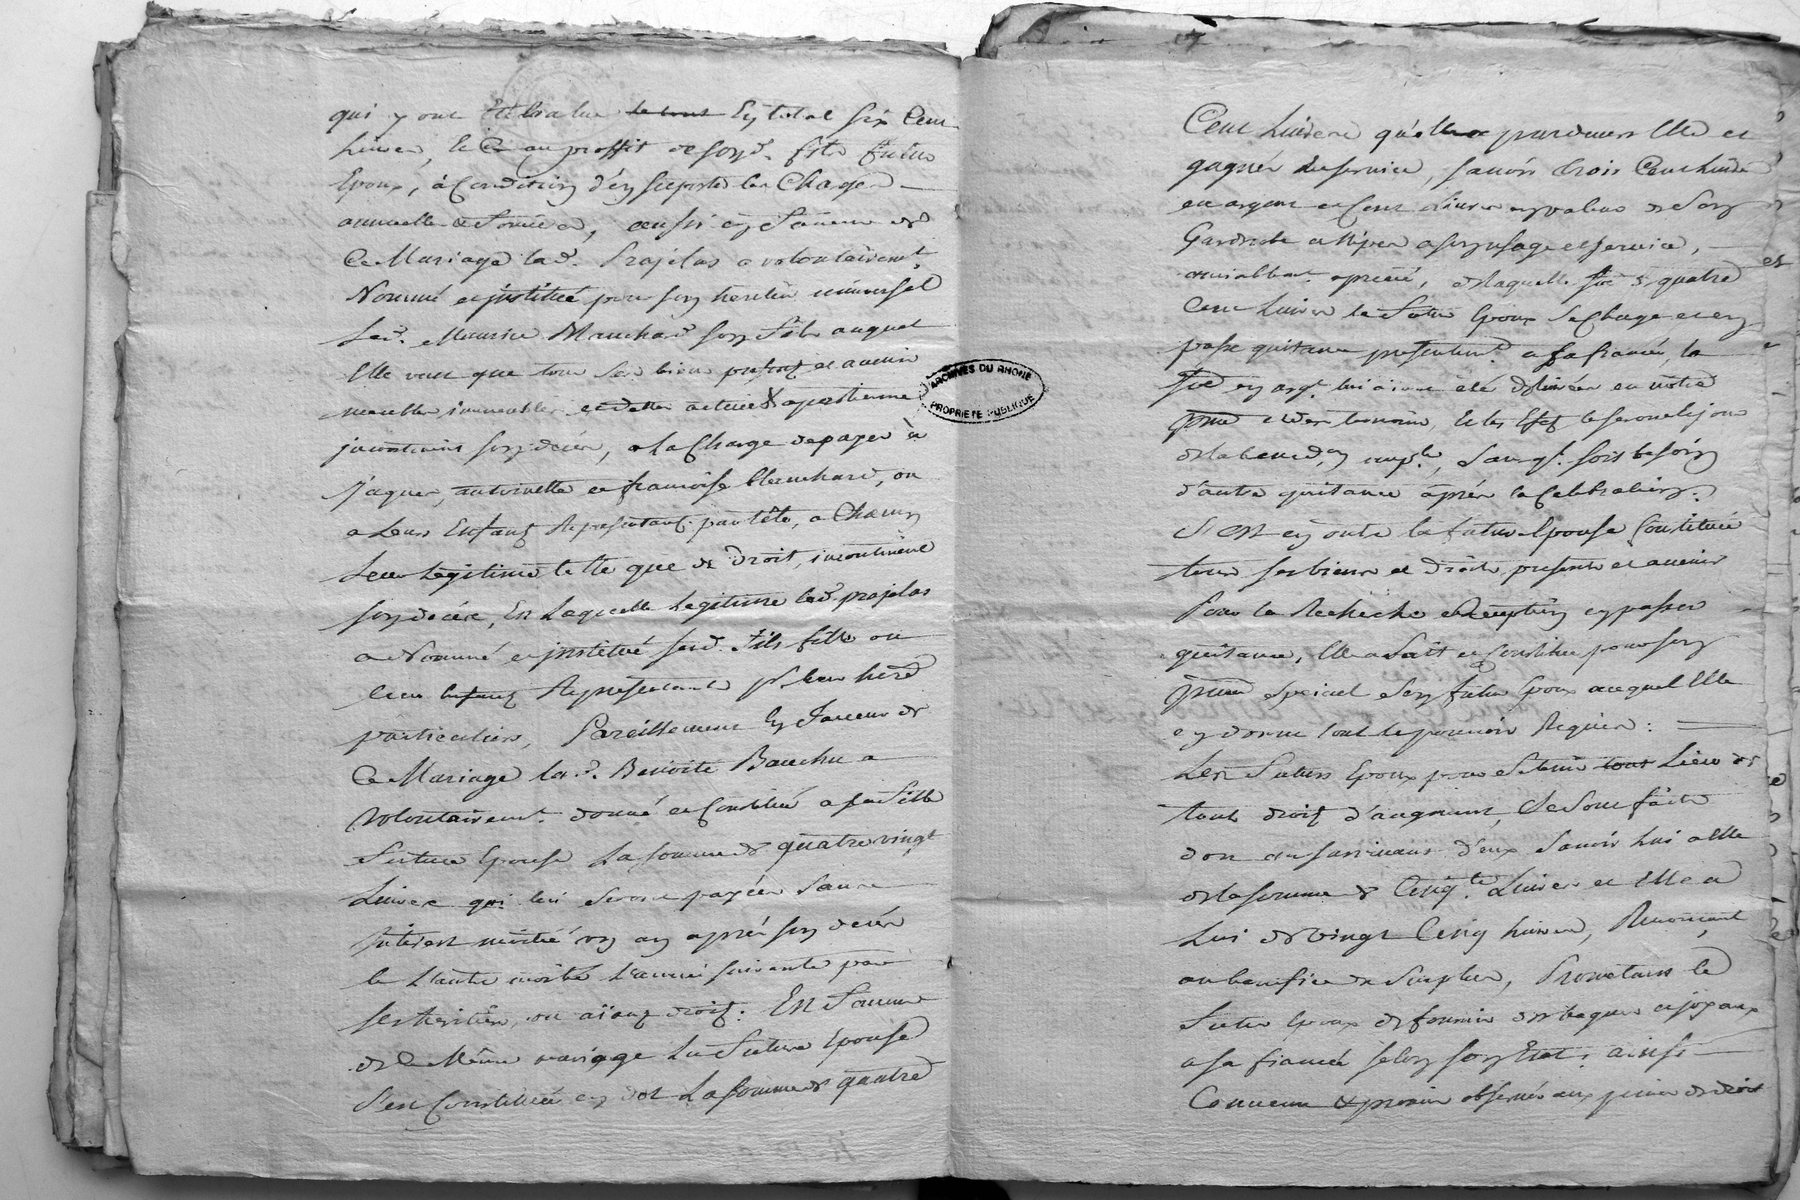 qui y ont Eté Evalué le tout En total six Cent
Livres, le Ce au proffit de son d. fils futur
Epoux, à Condition d'en suporter les Charges
annuelles &, aussi en faveur de
Ce Mariage lad. Prajelas a volontairemt.
Nommé et institué pour son heritier universel
Led. Maurice Manchard son fils auquel
Elle veut que tous ses biens presents et avenir
meubles immeubles et dettes actives apartienne
incontinent son deces, a la Charge de payer à
Jaques, antoinette et francoise Manchard, ou
a Leurs Enfans Representant par tête, a Chacun
Leur Légitime telle que de Droit, incontinent
son decès, En Laquelle Legitime lad. prajelas
a Nommé et institué sesd. fils fille ou
leurs enfans Representants pr. leur herед
particuliers, Pareillement En faveur de
Ce Mariage lad. Benoite Bauchu a
volontairemt. donné et Constitué a sa fille
future Epouse La somme de quatre vingt
Livres qui lui seront payées sans
Interest moitié un an après son decès
et L'autre moitié L'année suivante par
ses heritiers, ou aïant droit. En faveur
de Ce Même mariage La future Epouse
s'est Constituée en dot La somme de quatre
Cent Livres qu'elle pardevers Elle et
gagnés service, savoir trois Cent Livres
en argent et Cent Livres en valeur de son
Garderobe et Nipes a son usage et service,
amiablemt. aprecié, de laquelle sme de quatre
Cent Livres le futur Epoux se Charge et en
passe quitance presentemt. a sa fiancée, la
sme en argt. lui aïant été délivrée en notre
pnce et des temoins, Et les Effets le seront le jour
de la bened.on nup.le, sans qt. soit besoin
d'autre quitance après la Celebration.
S'est en outre la future Epouse Constituée
tous ses biens et Droits presents et avenir
Pour la Recherche exemption en passer
quitance, Elle a fait et Constitué pour son
special son futur Epoux auquel Elle
en donne tout le pouvoir Requis:
Les futurs Epoux pour tenir tout Lieu de
tout droit d'augment, Se sont faits
don au survivant d'eux savoir Lui a elle
de la somme de Cinqte. Livres et Elle a
Lui de vingt Cinq Livres, Renonçant
au benefice de Surplus, Promettant le
futur Epoux de fournir des bagues et joyaux
a sa fiancée selon son Etat; ainsi
Convenu & promis observer aux peines de droit
ARCHIVES DU RHONE
PROPRIÉTÉ PUBLIQUE